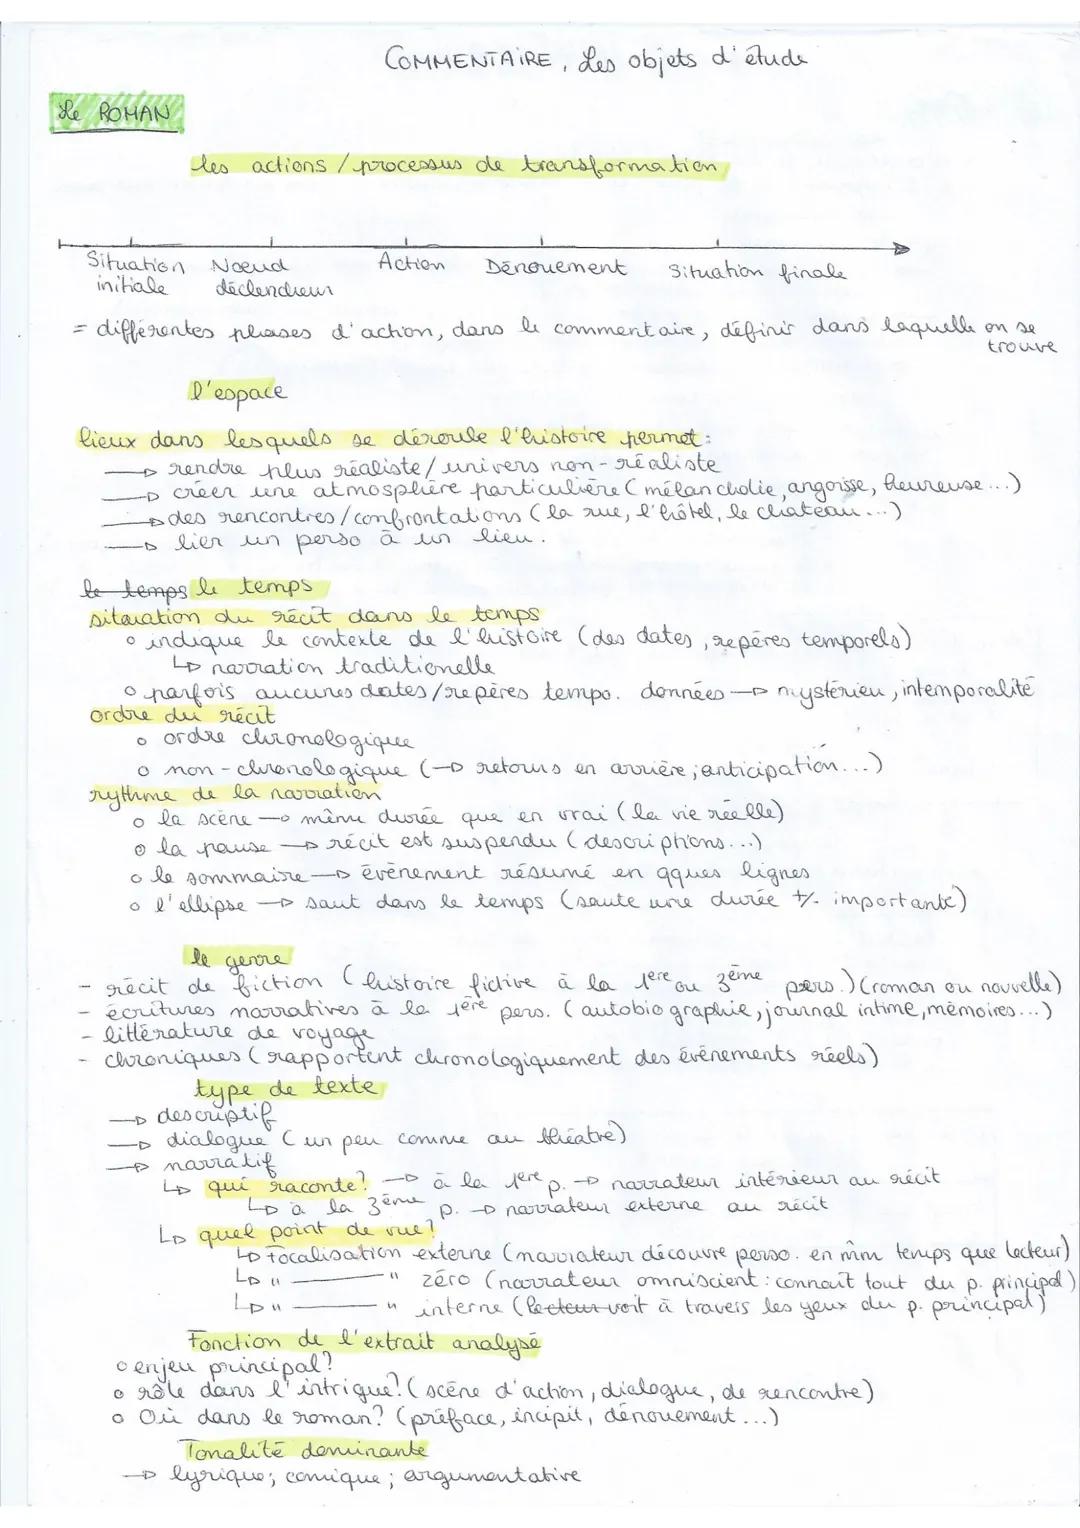 COMMENTAIRE, Les objets d'étude
Le ROMAN
les actions / processus de transformation
Situation initiale
Noeud déclencheur
Action
Dénouement
Situation finale
= différentes phases d'action, dans le commentaire, définir dans laquelle on se trouve
l'espace
lieux dans lesquels se déroule l'histoire permet :
→ rendre plus réaliste / univers non-réaliste
→ créer une atmosphère particulière (mélancholie, angoisse, heureuse...)
→ des rencontres / confrontations (la rue, l'hôtel, le chateau...)
→ lier un perso à un lieu.
le temps le temps
situation du récit dans le temps
o indique le contexte de l'histoire (des dates, repères temporels)
↳ narration traditionelle
o parfois aucunes dates / repères tempo. données → mystérieu, intemporalité
ordre du récit
o ordre chronologique
o non-chronologique (→ retours en arrière ; anticipation...)
rythme de la narration
o la scène → même durée que en vrai (la vie réelle)
o la pause → récit est suspendu (descriptions...)
o le sommaire → évènement résumé en qques lignes
o l'ellipse → saut dans le temps (saute une durée +/- importante)
le genre
- récit de fiction (histoire fictive à la 1ere ou 3ème pers.) (roman ou nouvelle)
- écritures narratives à la 1ère pers. (autobiographie, journal intime, mémoires...)
- littérature de voyage
- chroniques (rapportent chronologiquement des événements réels)
type de texte
→ descriptif
→ dialogue (un peu comme au théatre)
→ narratif
↳ qui raconte ? → à la 1ere p. → narrateur intérieur au récit
↳ à la 3ème p. → narrateur externe au récit
↳ quel point de vue ?
↳ Focalisation externe (narrateur découvre perso. en mm temps que lecteur)
↳ " ——— " zéro (narrateur omniscient : connait tout du p. principal)
↳ " ——— " interne (lecteur voit à travers les yeux du p. principal)
Fonction de l'extrait analysé
o enjeu principal ?
o rôle dans l'intrigue ? (scène d'action, dialogue, de rencontre)
o Où dans le roman ? (préface, incipit, dénouement...)
Tonalité dominante
→ lyrique ; comique ; argumentative